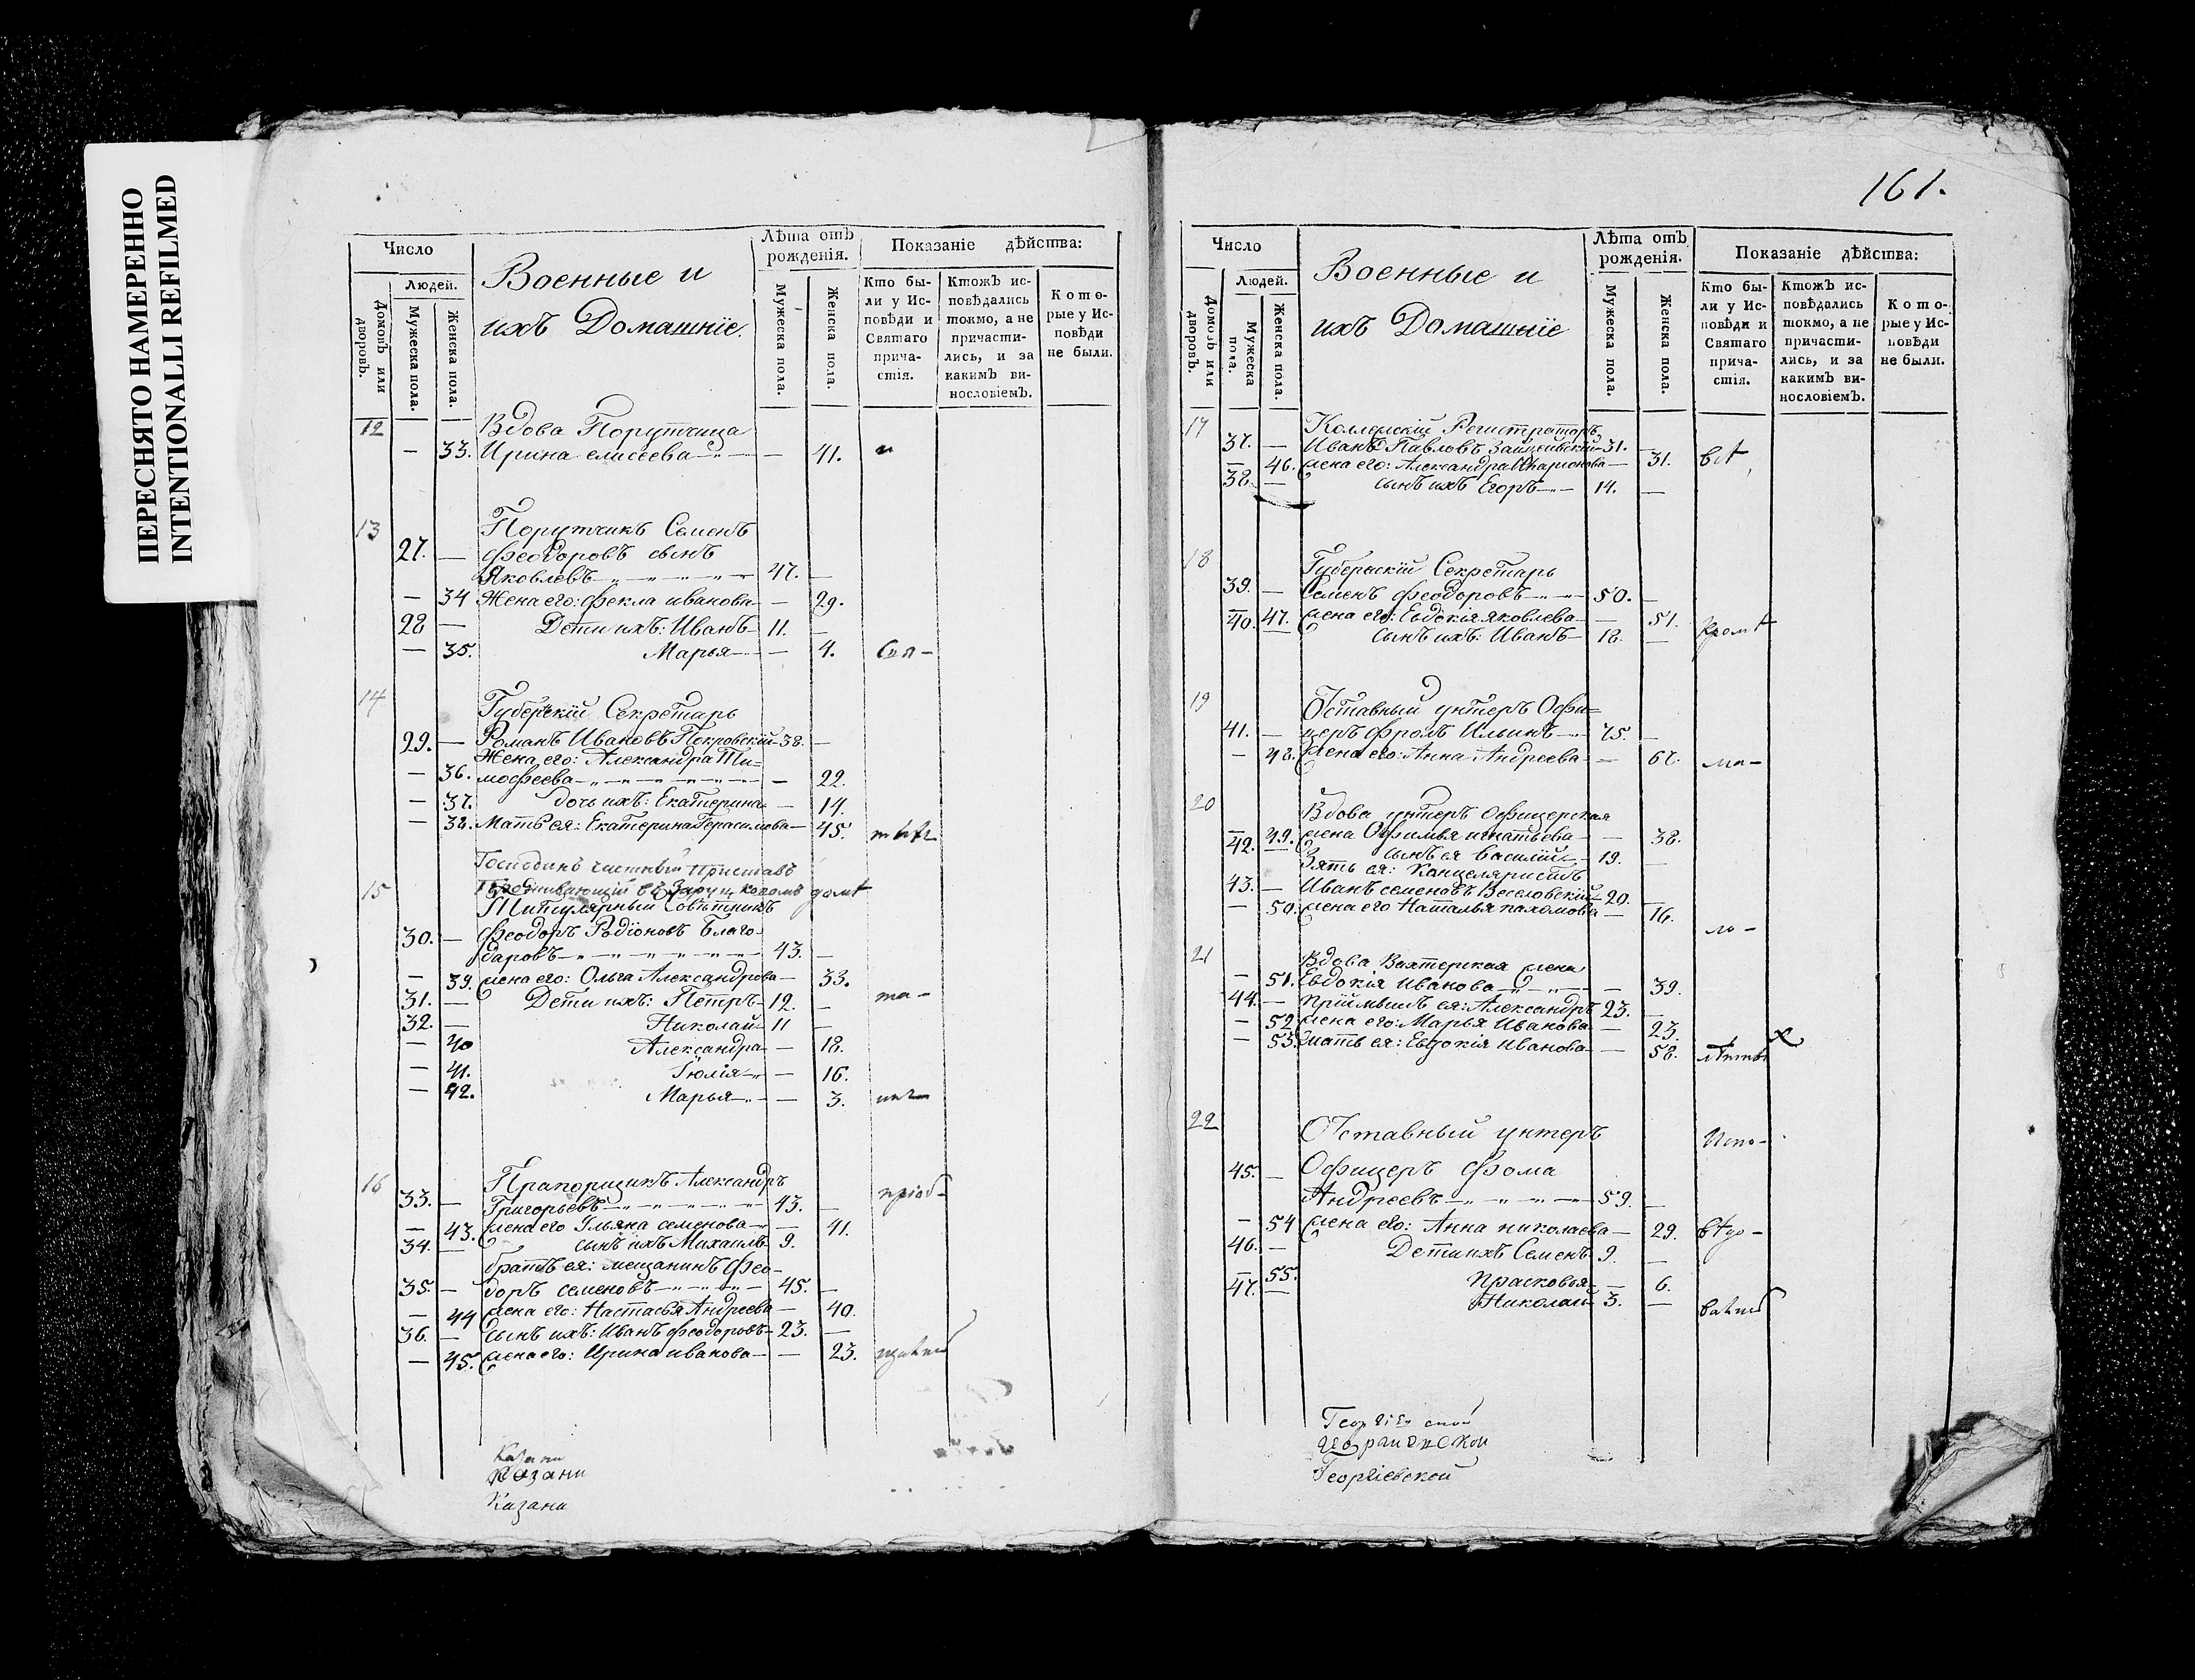 ПЕРЕСНЯТО НАМЕРЕННО
INTENTIONALLI REFILMED
Число
Людей.
Домовъ или дворовъ.
Мужеска пола.
Женска пола.
Военные и
ихъ Домашніе.
Лѣта отъ рожденія.
Мужеска пола.
Женска пола.
Показаніе дѣйства:
Кто были у Исповѣди и Святаго причастія.
Ктожъ исповѣдались токмо, а не причастились, и за какимъ винословіемъ.
Которые у Исповѣди не были.
12 Вдова Порутчица
— 33. Ирина елисеева — 41. и
13 Порутчикъ Семенъ
27. — Феодоровъ сынъ
Яковлевъ 47. —
— 34 Жена его: Фекла иванова — 29.
28 — Дети ихъ: Иванъ 11. —
— 35. Марья — 4.
14 Губернскій Секретарь
29. — Романъ Ивановъ Покровскій 38. —
Жена его: Александра Ти=
— 36. мофеева — 22.
— 37. дочь ихъ: Екатерина — 14.
— 38. Мать ея: Екатерина Герасимова — 45.
Господинъ частный приставъ
15 домѣ
Титулярный Совѣтникъ
30. — Феодоръ Родіоновъ Благо-
даровъ 43. —
— 39. жена его: Ольга Александрова — 33.
31. — Дети ихъ: Петръ 12. — та-
32. — Николай 11 —
— 40 Александра — 18.
— 41. Іюлія — 16.
— 42. Марья — 3.
16 Прапорщикъ Александръ
33. — Григорьевъ 43. — пріоб-
— 43. жена его Ульяна семенова — 41.
34. — сынъ ихъ Михаилъ 9.
братъ ея: мещанинъ Фео-
35. — доръ семеновъ 45. —
— 44 жена его: Настасья Андреева — 40.
36. — сынъ ихъ: Иванъ Феодоровъ 23. —
— 45. жена его: Ирина иванова — 23.
Казани
Казани
Казани
161.
Число
Людей.
Домовъ или дворовъ.
Мужеска пола.
Женска пола.
Военные и
ихъ Домашніе
Лѣта отъ рожденія.
Мужеска пола.
Женска пола.
Показаніе дѣйства:
Кто были у Исповѣди и Святаго причастія.
Ктожъ исповѣдались токмо, а не причастились, и за какимъ винословіемъ.
Которые у Исповѣди не были.
17 Коллежскій Регистраторъ
37. — Иванъ Павловъ 31.
— 46. жена его: Александра — 31. всѣ
38. — сынъ ихъ Егоръ 14. —
18 Губернскій Секретарь
39. — Семенъ Феодоровъ 50. —
— 47. жена его: Евдокія яковлева — 51.
40. — сынъ ихъ: Иванъ 18. — кромѣ
19 Отставный унтеръ Офи=
41. — церъ Фролъ Ильинъ 75. —
— 48. жена его: Анна Андреева — 67. ма-
20 Вдова унтеръ Офицерская
— 49. жена Офимья игнатьева — 38.
42. — сынъ ея Василій 19. —
Зять ея: Канцеляристъ
43. — Иванъ семеновъ Веселовскій 20. —
— 50. жена его Наталья пахомова — 16. ло-
21 Вдова Вахтерская жена
— 51. Евдокія Иванова — 39.
44. — пріимышъ ея: Александръ 23. —
— 52 жена его: Марья Иванова — 23.
— 53. мать ея: Евдокія Иванова — 58. лѣтны х
22 Отставный унтеръ Испо-
45. — Офицеръ Фома
Андреевъ 59. —
— 54 жена его: Анна николаева — 29. вѣдо-
46. — Дети ихъ Семенъ 9. —
— 55. Прасковья — 6.
47. — Николай 3. —
Георгіевской
Георгіевской
Георгіевской